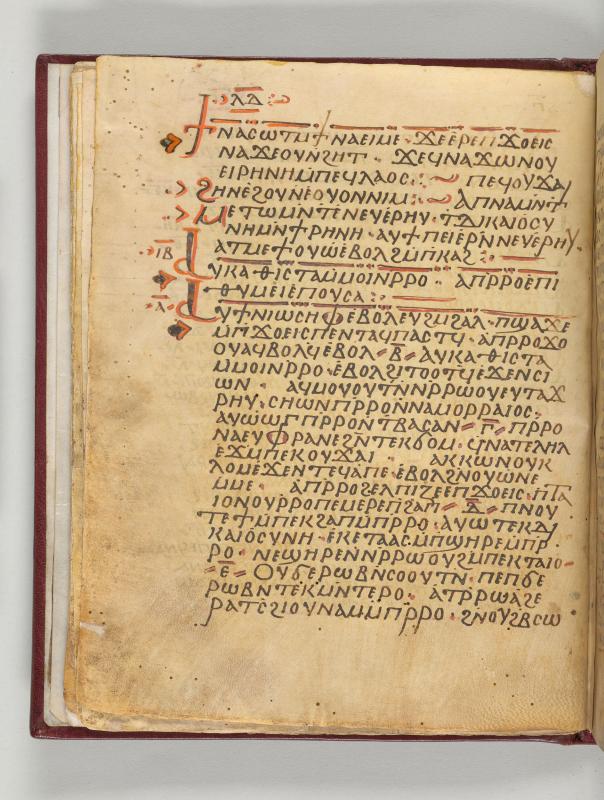 ⲗⲇ
ϯⲛⲁⲥⲱⲧⲙϯⲛⲁⲉⲓⲙⲉ · ϫⲉⲉⲣⲉⲡϫⲟⲉⲓⲥ
ⲛⲁϫⲉⲟⲩⲛϩⲏⲧ · ϫⲉϥⲛⲁϫⲱⲛⲟⲩ
ⲉⲓⲣⲏⲛⲏⲙⲡⲉϥⲗⲁⲟⲥ : ⲡⲉϥⲟⲩϫⲁⲓ
ϩⲏⲛⲉϩⲟⲩⲛⲉⲟⲩⲟⲛⲛⲓⲙ : ⲁⲡⲛⲁⲙⲛϯ
ⲙⲉⲧⲱⲙⲛⲧⲉⲛⲉⲩⲉⲣⲏⲩ · ⲧⲇⲓⲕⲁⲓⲟⲥⲩ
ⲛⲏⲙⲛϯⲣⲏⲛⲏ · ⲁⲩϯⲡⲉⲓⲉⲣⲛⲛⲉⲩⲉⲣⲏⲩ ·
ⲁⲧⲙⲉϯⲟⲩⲱⲉⲃⲟⲗϩⲙⲡⲕⲁϩ :
ⲓⲃ ⲁⲩⲕⲁⲑⲓⲥⲧⲁⲙⲙⲟⲓⲛⲣⲣⲟ · ⲁⲡⲣⲣⲟⲉⲡⲓ
ⲑⲩⲙⲉⲓⲉⲡⲟⲩⲥⲁ :
ⲁ ⲁⲩϯⲛⲓⲱⲥⲏⲫⲉⲃⲟⲗⲉⲩϩⲙϩⲁⲗ · ⲡϣⲁϫⲉ
ⲙⲡϫⲟⲉⲓⲥⲡⲉⲛⲧⲁϥⲡⲁⲥⲧϥ · ⲁⲡⲣⲣⲟϫⲟ
ⲟⲩⲁϥⲃⲟⲗϥⲉⲃⲟⲗ ⲃ ⲁⲩⲕⲁⲑⲓⲥⲧⲁ
ⲙⲙⲟⲓⲛⲣⲣⲟ · ⲉⲃⲟⲗϩⲓⲧⲟⲟⲧϥⲉϫⲉⲛⲥⲓ
ⲱⲛ · ⲁϥⲙⲟⲩⲟⲩⲧⲛⲛⲣⲣⲱⲟⲩⲉⲩⲧⲁϫ
ⲣⲏⲩ · ⲥⲏⲱⲛⲡⲣⲣⲟⲛⲛⲁⲙⲟⲣⲣⲁⲓⲟⲥ ·
ⲁⲩⲱⲱⲅⲡⲣⲣⲟⲛⲧⲃⲁⲥⲁⲛ ⲅ ⲡⲣⲣⲟ
ⲛⲁⲉⲩⲫⲣⲁⲛⲉϩⲛⲧⲉⲕϭⲟⲙ · ϥⲛⲁⲧⲉⲗⲏⲗ
ⲉϫⲙⲡⲉⲕⲟⲩϫⲁⲓ · ⲁⲕⲕⲱⲛⲟⲩⲕ
ⲗⲟⲙⲉϫⲉⲛⲧⲉϥⲁⲡⲉ · ⲉⲃⲟⲗϩⲛⲟⲩⲱⲛⲉ
ⲙⲙⲉ · ⲁⲡⲣⲣⲟϩⲉⲗⲡⲓⲍⲉⲉⲡϫⲟⲉⲓⲥ · ⲏⲧⲁ
ⲓⲟⲛⲟⲩⲣⲣⲟⲡⲉⲙⲉⲣⲉⲡϩⲁⲡ ⲇ ⲡⲛⲟⲩ
ⲧⲉϯⲙⲡⲉⲕϩⲁⲡⲙⲡⲣⲣⲟ · ⲁⲩⲱⲧⲉⲕⲇⲓ
ⲕⲁⲓⲟⲥⲩⲛⲏ · ⲉⲕⲉⲧⲁⲁⲥⲙⲡϣⲏⲣⲉⲙⲡⲣ
ⲣⲟ · ⲛⲉϣⲏⲣⲉⲛⲛⲣⲣⲱⲟⲩϩⲙⲡⲉⲕⲧⲁⲓⲟ
ⲉ ⲟⲩϭⲉⲣⲱⲃⲛⲥⲟⲟⲩⲧⲛ · ⲡⲉⲡϭⲉ
ⲣⲱⲃⲛⲧⲉⲕⲙⲛⲧⲉⲣⲟ · ⲁⲧⲣⲣⲱⲁϩⲉ
ⲣⲁⲧⲥϩⲓⲟⲩⲛⲁⲙⲙⲡⲣⲣⲟ · ϩⲛⲟⲩϩⲃⲥⲱ